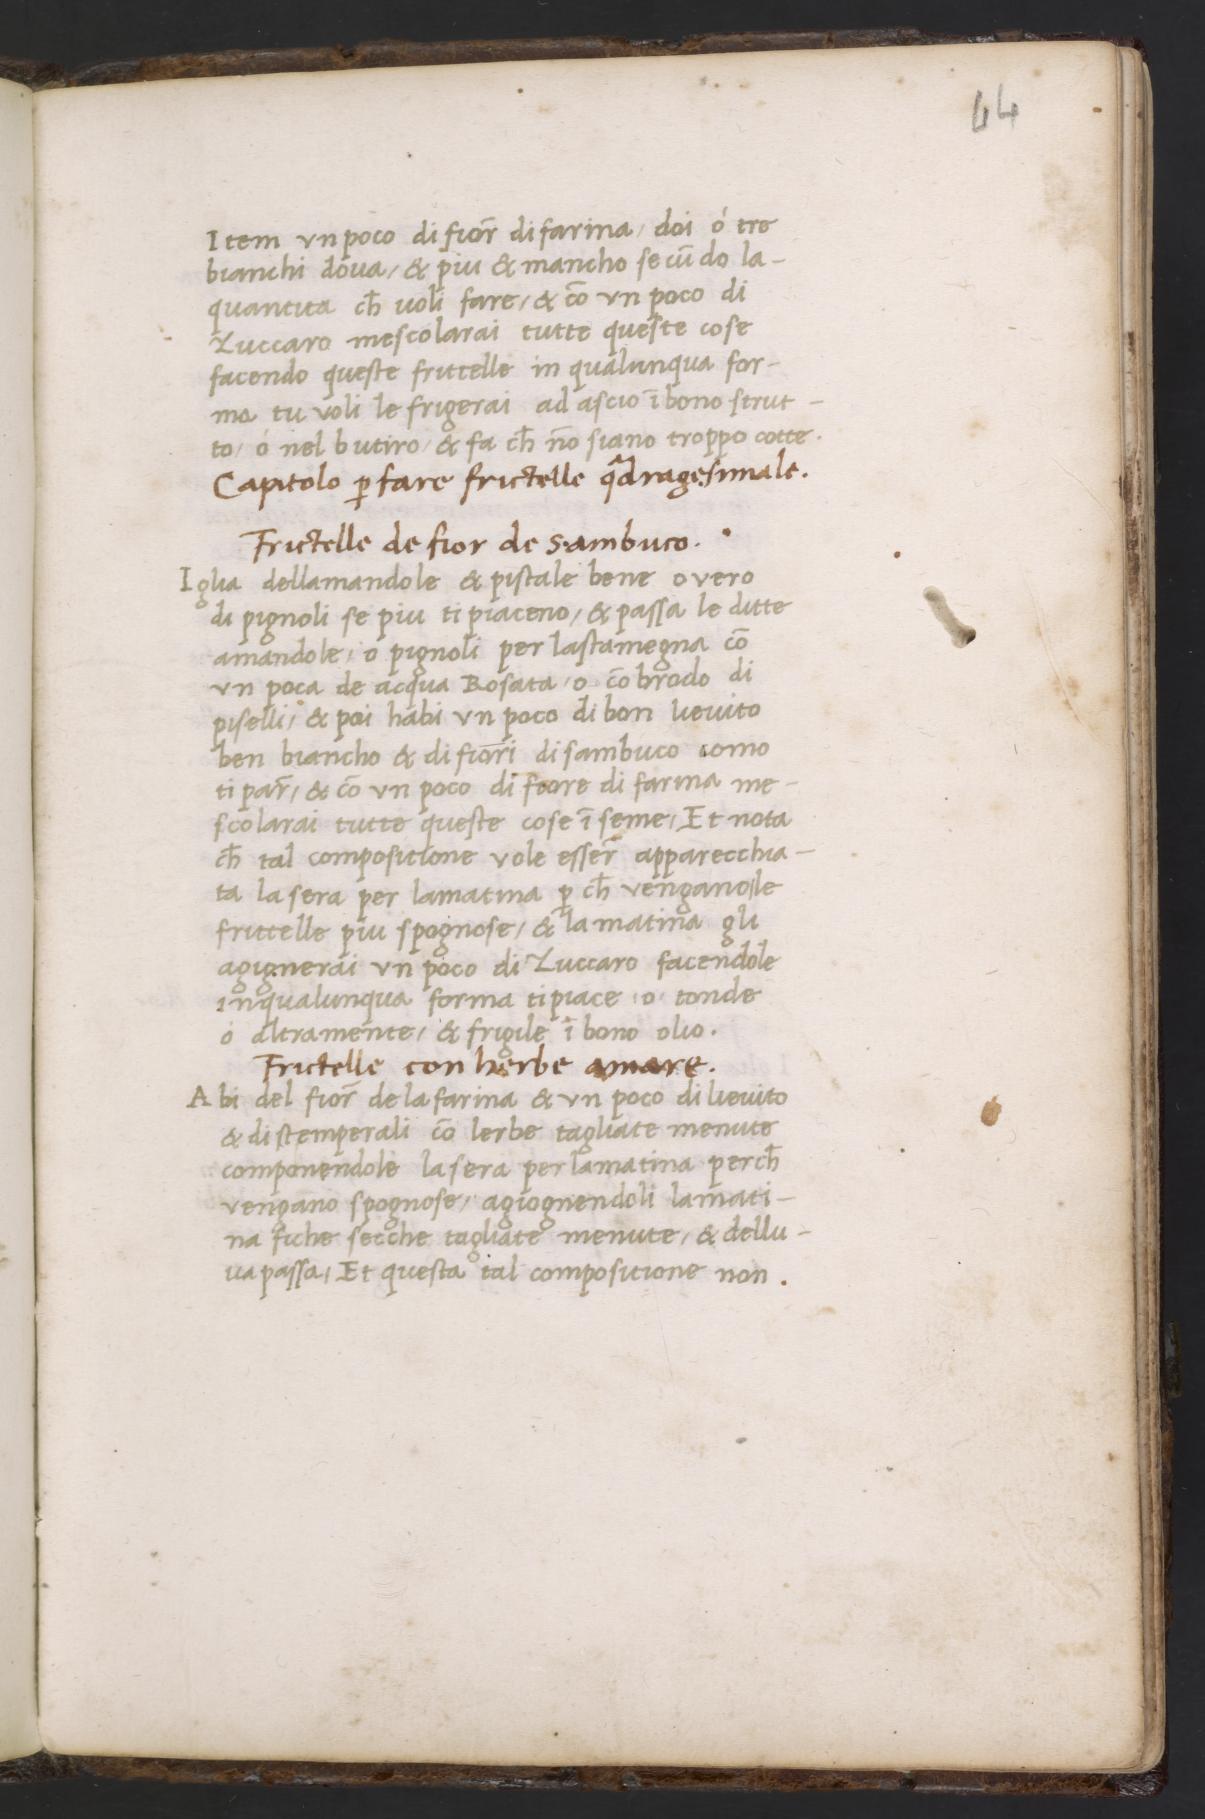 44
Item vn poco di fior̄ di farina / doi ó tre
bianchi dóua / & piu & mancho secūdo la-
quantita ch̄ uoli fare / & cō vn poco di
Zuccaro mescolarai tutte queste cose
facendo queste frittelle in qualunqua for-
ma tu voli le frigerai ad ascio ī bono strut-
to / ó nel butiro / & fa ch̄ nō siano troppo cotte.
Capitolo ꝑ fare frictelle qͣdragesimale.
Frictelle de fior de sambuco.
Iglia dellamandole & pistale bene overo
di pignoli se piu ti piaceno / & passa le ditte
amandole / o pignoli per lastamegna cō
vn poca de acqua Rosata / o cō brodo di
piselli / & poi habi vn poco di bon lieuito
ben biancho & di fiori di sambuco como
ti par̄ / & cō vn poco di fiore di farina me-
scolarai tutte queste cose ī seme / Et nota
ch̄ tal compositione vole esser̄ apparecchia-
ta la sera per lamatina ꝑ ch̄ vengano le
frittelle piu spognose / & la matina gli
agignerai vn poco di Zuccaro facendole
inqualunqua forma ti piace / o / tonde
o altramente / & frigile ī bono olio.
Frictelle con herbe amare.
Abi del fior̄ de la farina & vn poco di lieuito
& distemperali cō lerbe tagliate menute
componendole la sera per lamatina perch̄
vengano spognose / agiognendoli lamati-
na fiche secche tagliate menute / & dellu-
ua passa / Et questa tal compositione non.